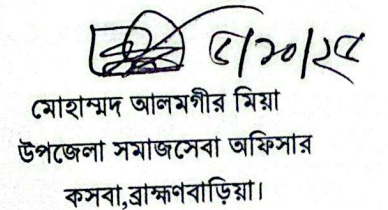 ৫/১০/২৫
মোহাম্মদ আলমগীর মিয়া
উপজেলা সমাজসেবা অফিসার
কসবা,ব্রাহ্মণবাড়িয়া।